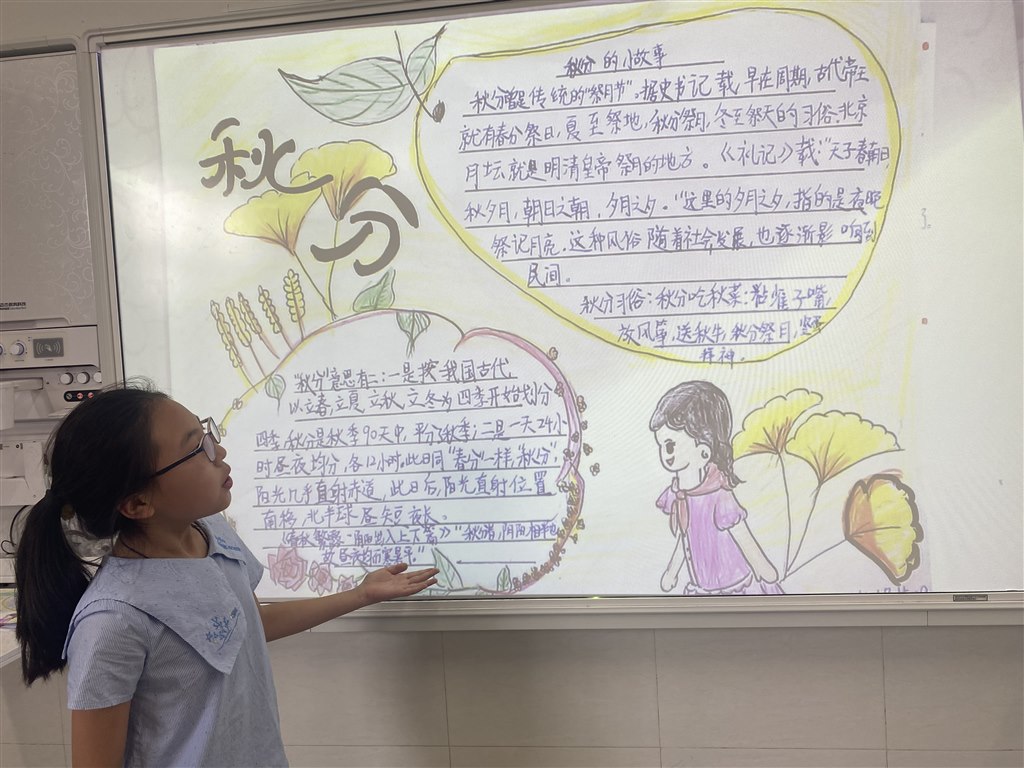 秋分
秋分的小故事
秋分曾是传统的"祭月节"。据史书记载 早在周期,古代帝王
就有春分祭日,夏至祭地,秋分祭月,冬至祭天的习俗,北京
月坛就是明清皇帝祭月的地方。《礼记》载:"天子春朝日
秋夕月,朝日之朝,夕月之夕。"这里的夕月之夕,指的是夜晚
祭记月亮,这种风俗随着社会发展,也逐渐影响到
民间。
秋分习俗:秋分吃秋菜:粘雀子嘴,
放风筝,送秋牛,秋分祭月,
拜神。
"秋分"意思有二:一是按我国古代,
以立春,立夏,立秋,立冬为四季开始划分
四季,秋分是秋季90天中,平分秋季;二是一天24小
时昼夜均分,各12小时。此日同"春分"一样,"秋分",
阳光几乎直射赤道,此日后,阳光直射位置
南移,北半球昼短夜长。
《春秋繁露·阴阳出入上下篇》"秋分者,阴阳相半也,
故昼夜均而寒暑平"